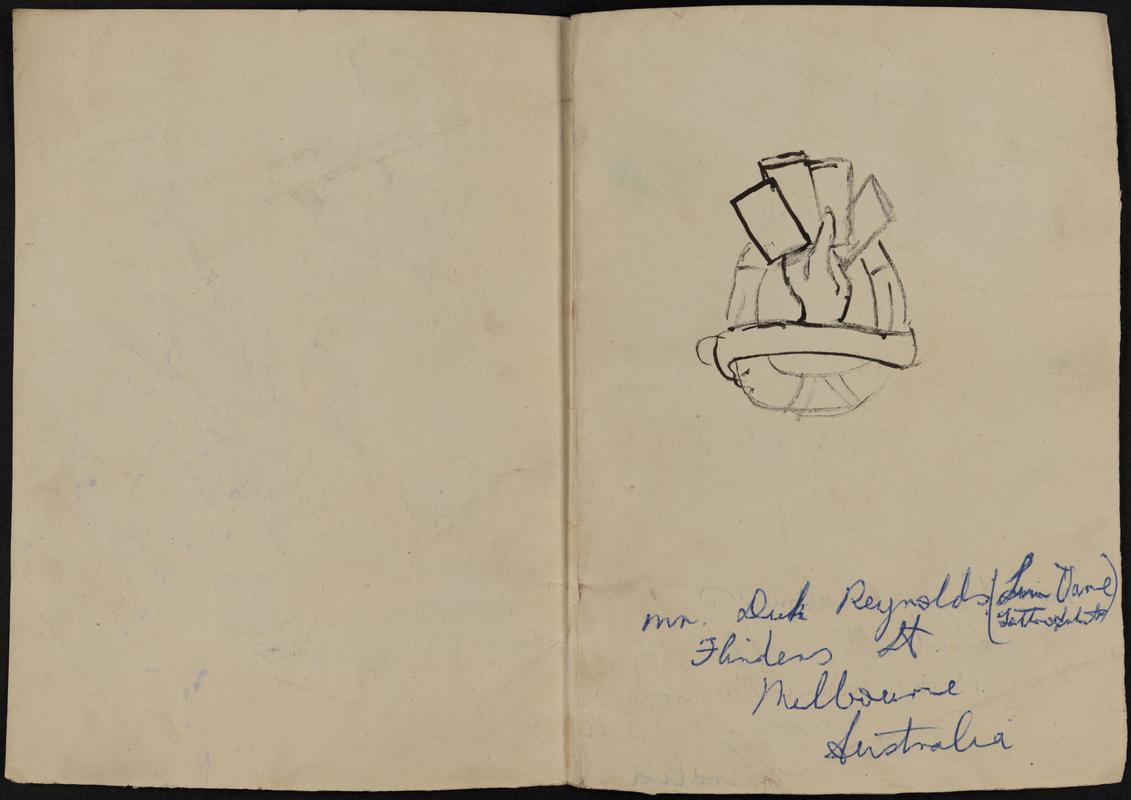 Mr. Dick Reynolds
Flinders St
Melbourne
Australia